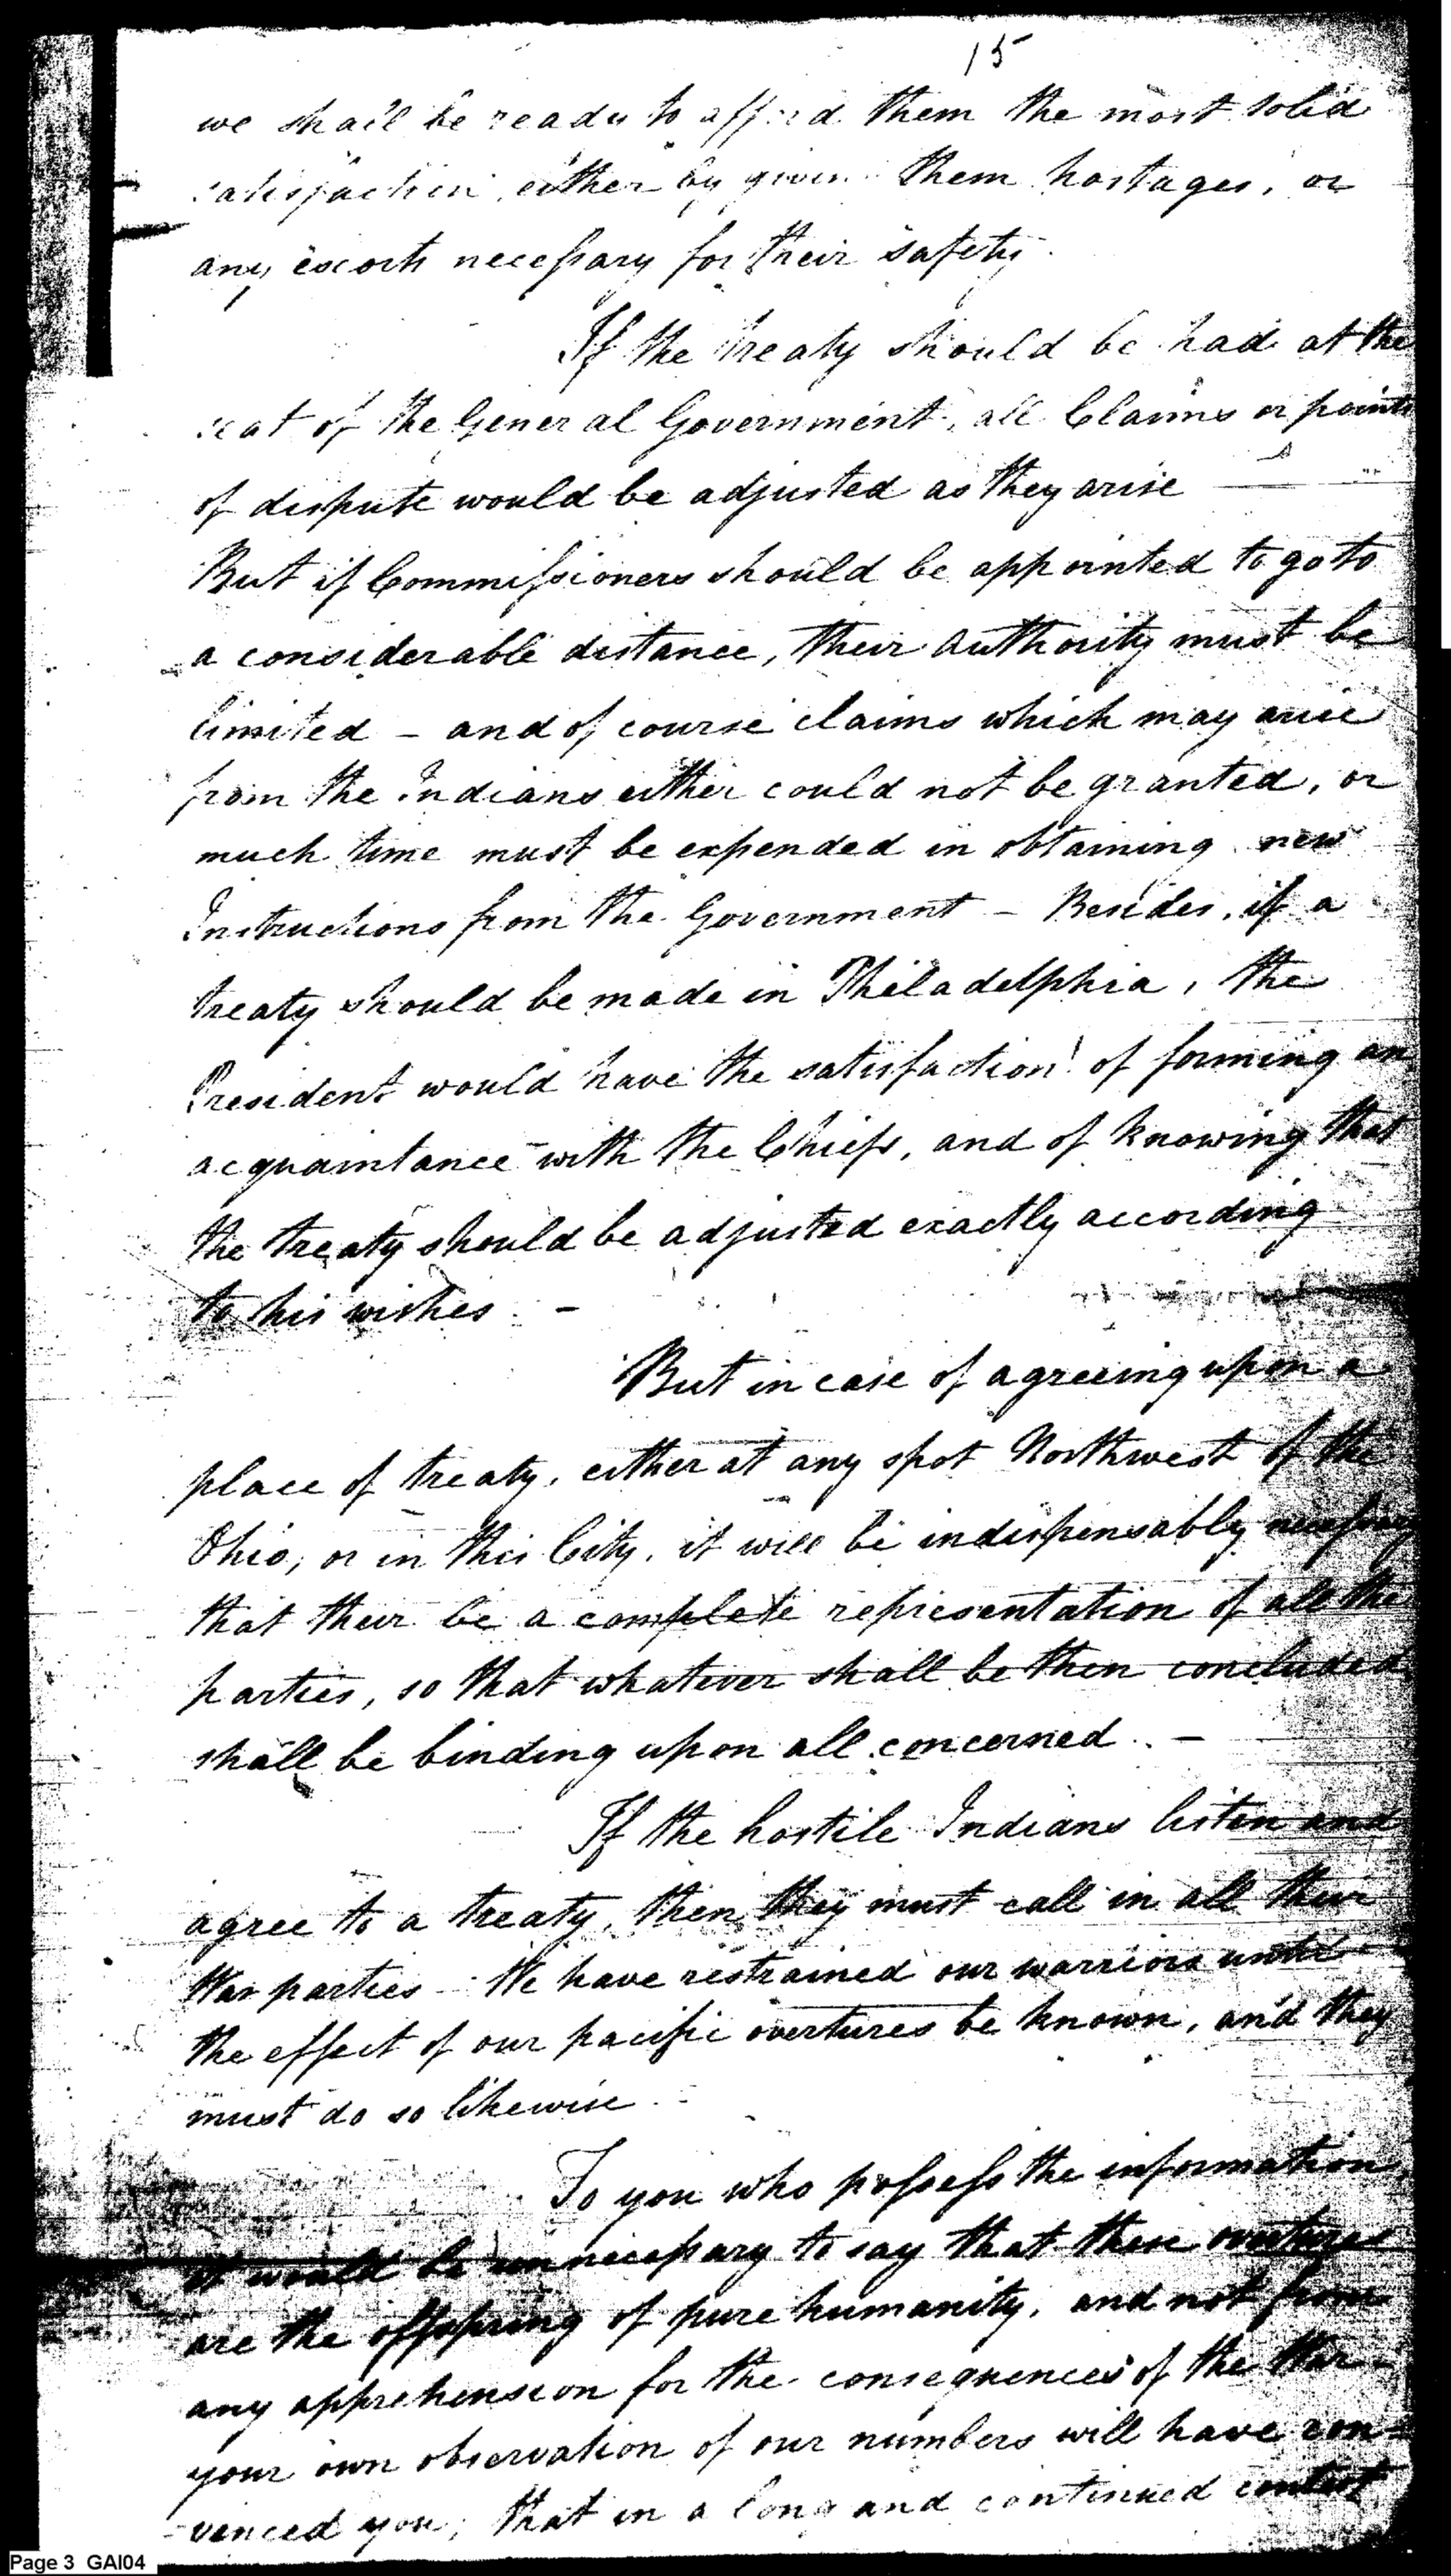 15
we shall be ready to afford them the most solid
satisfaction, either by giving them hostages, or
any escorts necessary for their safety.
If the treaty should be had at the
seat of the General Government, all Claims or points
of dispute would be adjusted as they arise —
But if Commissioners should be appointed to go to
a considerable distance, their authority must be
limited – and of course claims which may arise
from the Indians either could not be granted, or
much time must be expended in obtaining new
Instructions from the Government – Besides, if a
treaty should be made in Philadelphia, the
President would have the satisfaction of forming an
acquaintance with the Chiefs, and of knowing that
the treaty should be adjusted exactly according
to his wishes. –
But in case of agreeing upon a
place of treaty, either at any spot Northwest of the
Ohio, or in this City, it will be indispensably necessary
that their be a complete representation of all the
parties, so that whatever shall be then concluded
shall be binding upon all concerned. –
If the hostile Indians listen and
agree to a treaty, then they must call in all their
War parties – We have restrained our warriors until
the effect of our pacific overtures be known, and they
must do so likewise.
To you who possess the information,
it would be unnecessary to say that these overtures
are the offspring of pure humanity, and not from
any apprehension for the consequences of the War –
your own observation of our numbers will have con-
-vinced you, that in a long and continued contest
Page 3 GAI04